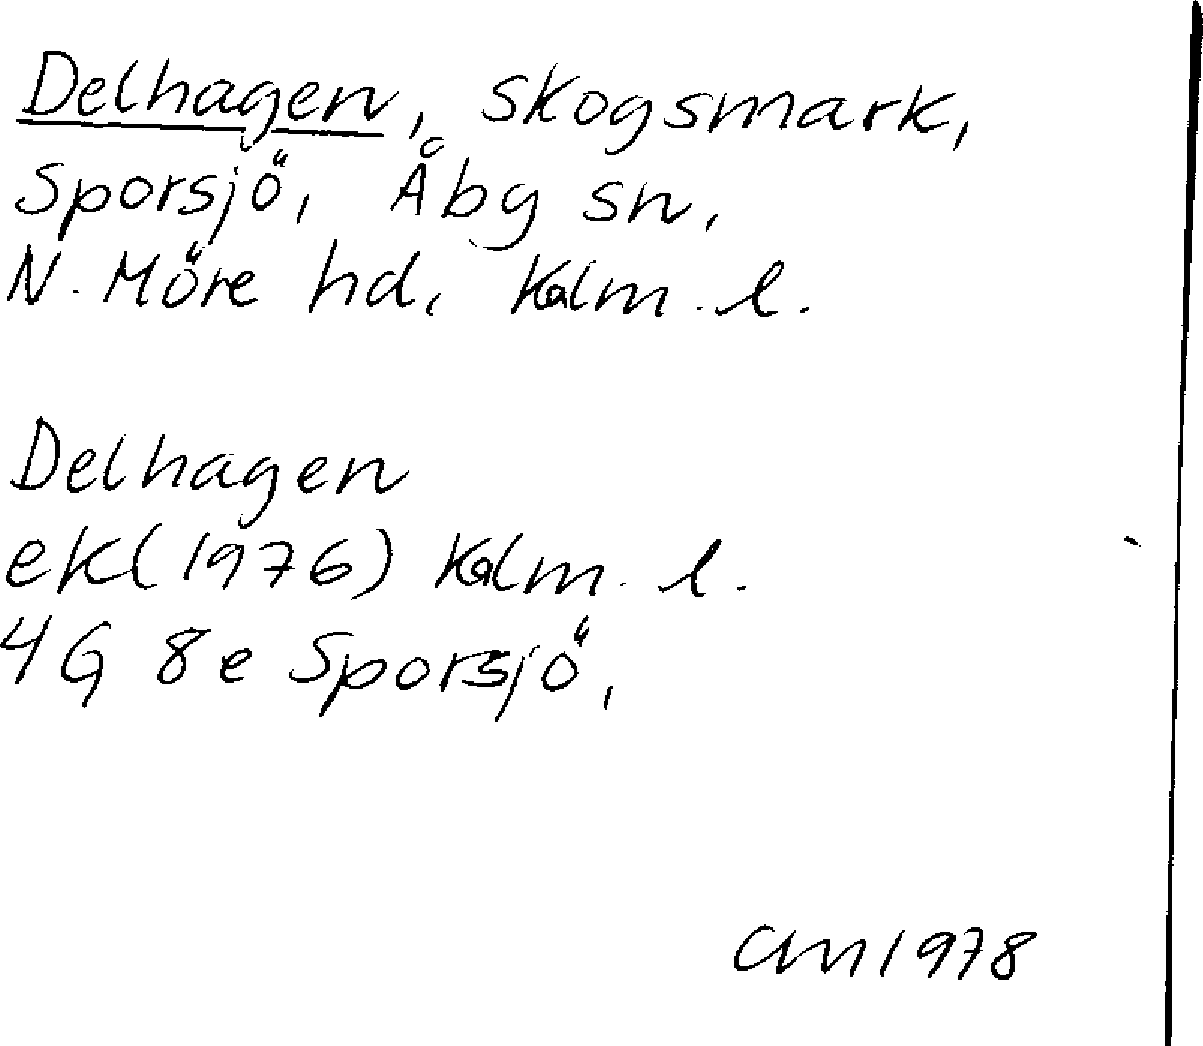 Delhagen, skogsmark,
Sporsjö, Åby sn,
N. Möre hd, Kalm. l.
Delhagen
ek(1976) Kalm. l.
4G 8e Sporsjö,
CM 1978